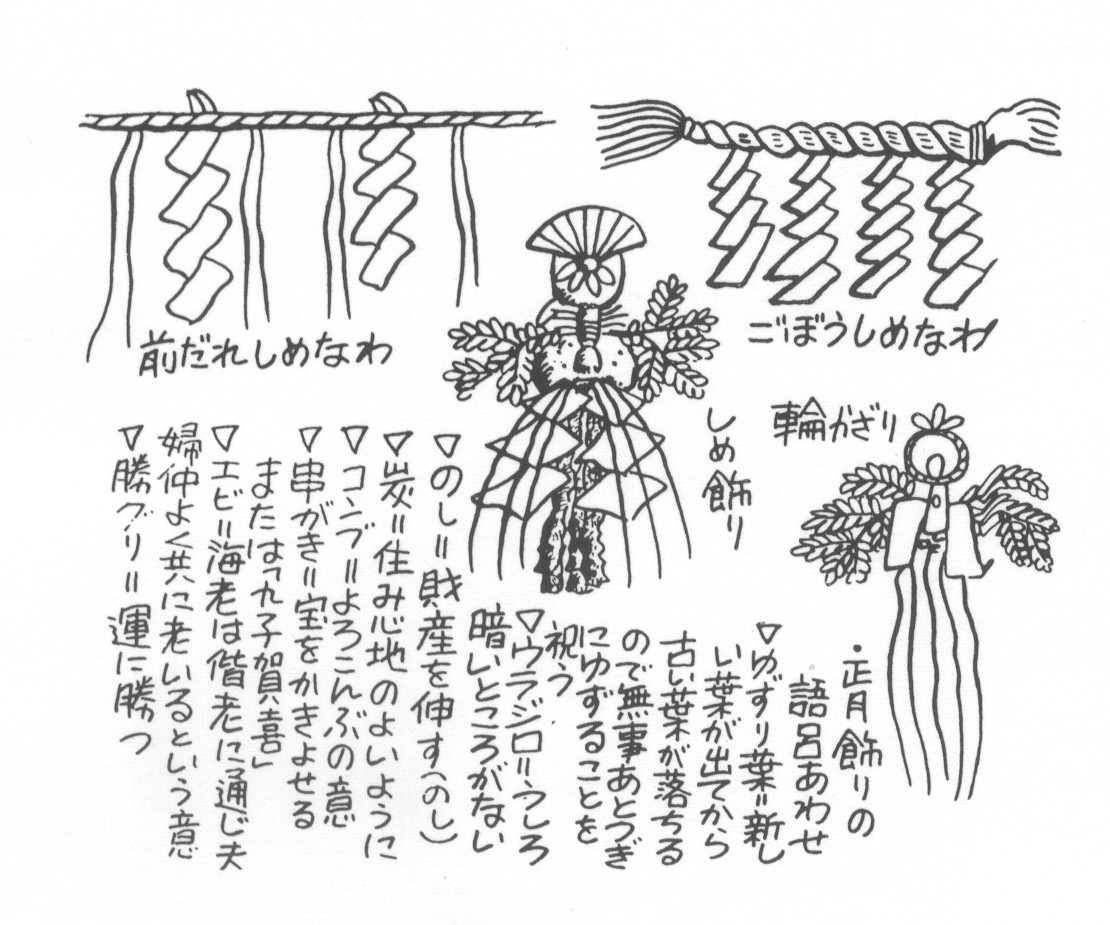 前だれしめなわ
ごぼうしめなわ
しめ飾り
輪かざり
・正月飾りの
語呂あわせ
▽ゆずり葉=新し
い葉が出てから
古い葉が落ちる
ので無事あとつぎ
にゆずることを
祝う
▽ウラジロ=うしろ
暗いところがない
▽のし=財産を伸す(のし)
▽炭=住み心地のよいように
▽コンブ=よろこんぶの意
▽串がき=宝をかきよせる
または「九子賀喜」
▽エビ=海老は偕老に通じ夫
婦仲よく共に老いるという意
▽勝グリ=運に勝つ